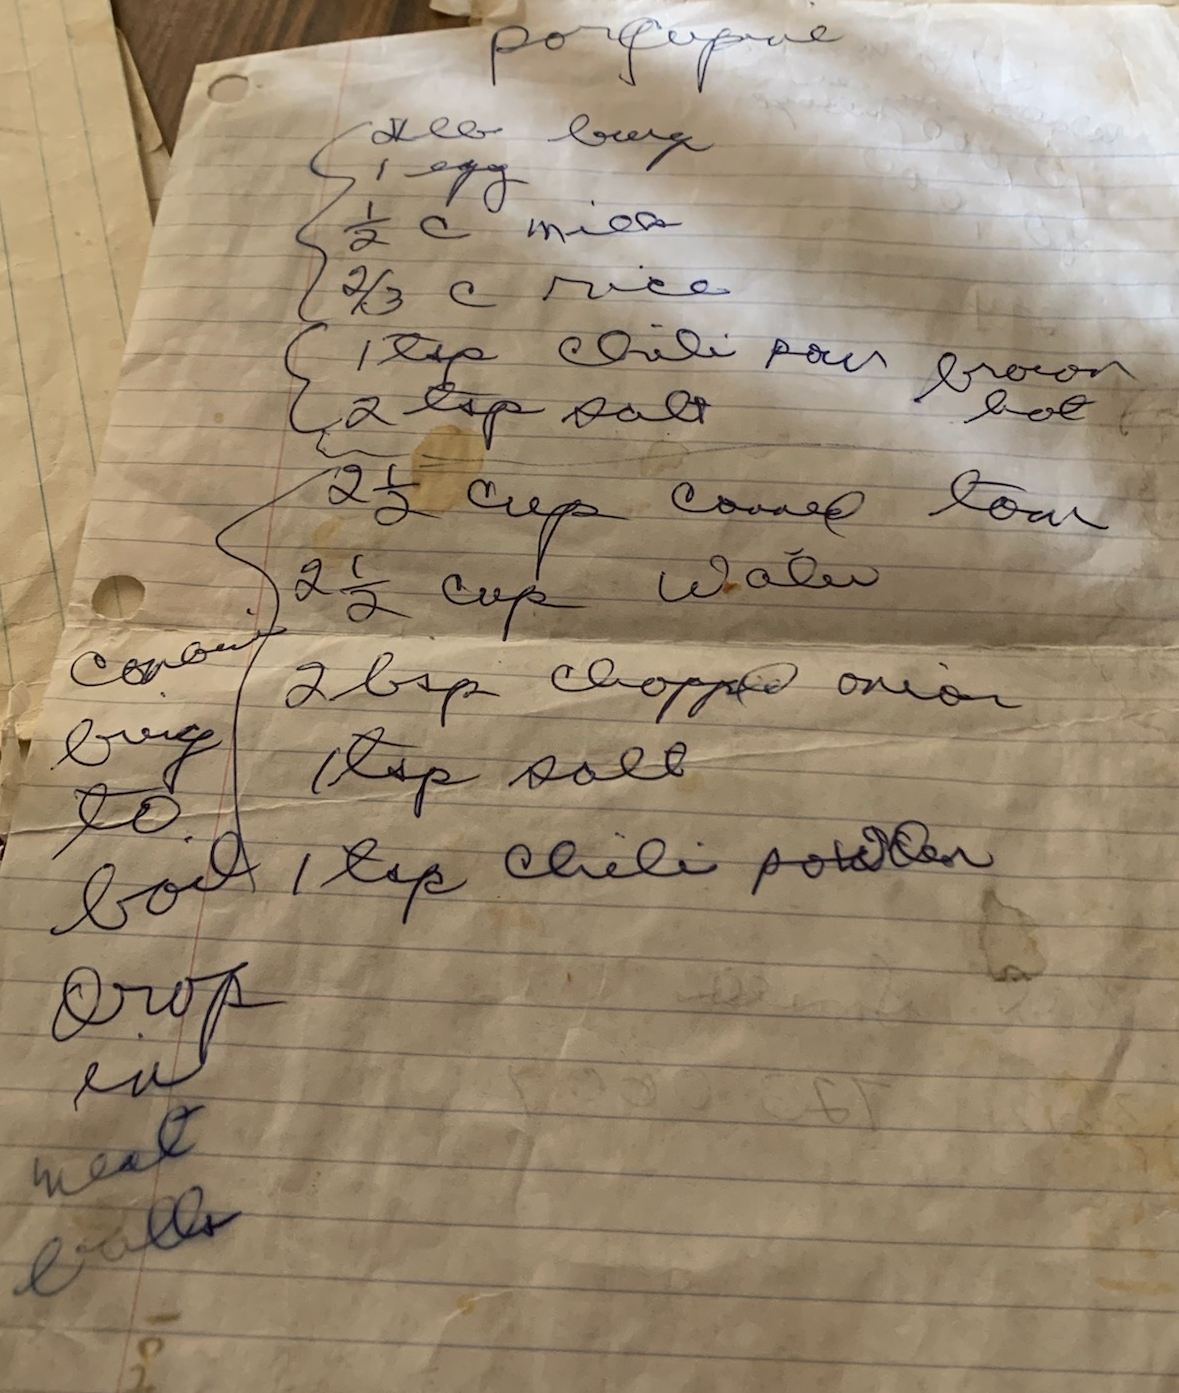 porcupine
burg
1 egg
1/2 c milk
2/3 c rice
1 tsp chili pow brown
2 tsp salt hot
2 1/2 cup canned tom
2 1/2 cup water
2 bsp chopped onion
1 tsp salt
1 tsp chili powder
combin
bring
to
boil
Drop
in
meat
balls